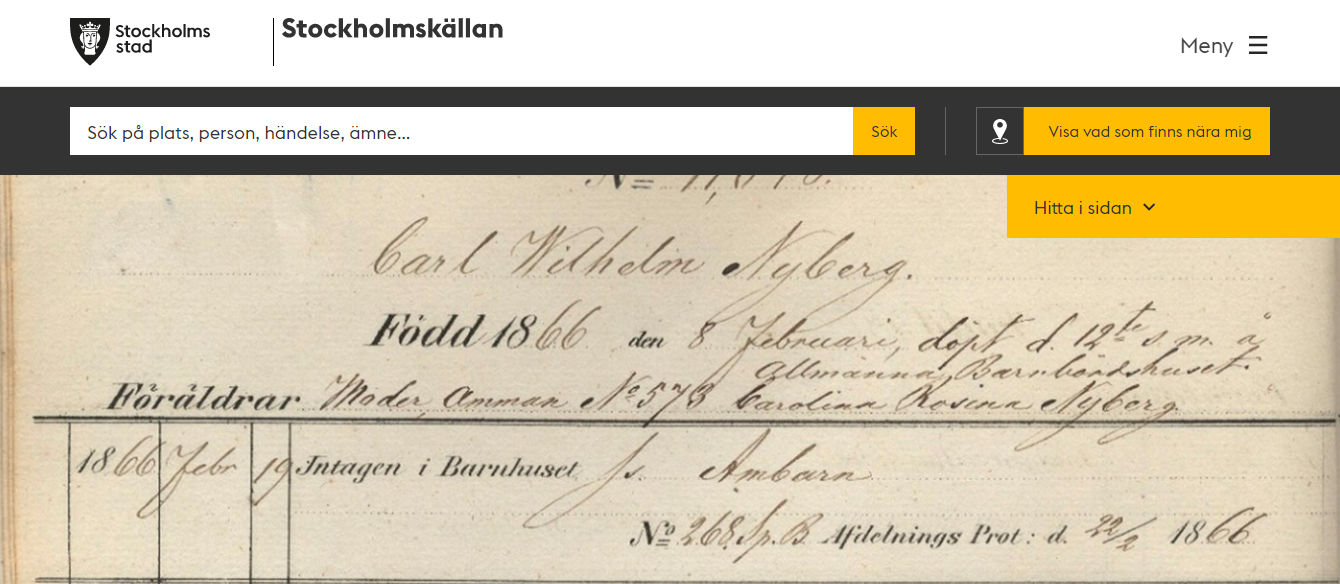 Stockholms
stad
Stockholmskällan
Meny
Sök på plats, person, händelse, ämne...
Sök
Visa vad som finns nära mig
Hitta i sidan
Carl Wilhelm Nyberg.
Född 1866 den 8 Februari, döpt d. 12te s. m. å
Allmänna Barnbördshuset.
Föräldrar Moder, Amman No 573 Carolina Rosina Nyberg
1866 Febr 19 Intagen i Barnhuset ss. Ambarn
No 268 Sp. B Afdelnings Prot: d. 22/2 1866